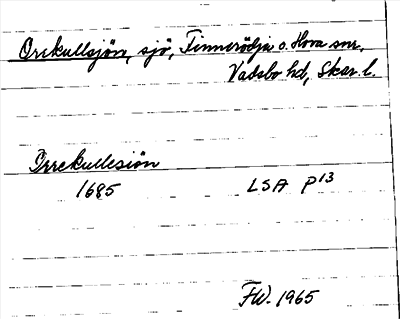 Orrekullsjön, sjö, Finnerödja o. Hova snr,
Vadsbo hd, Skar. l.
Örrekullesiön
1685 LSA P13
FW. 1965